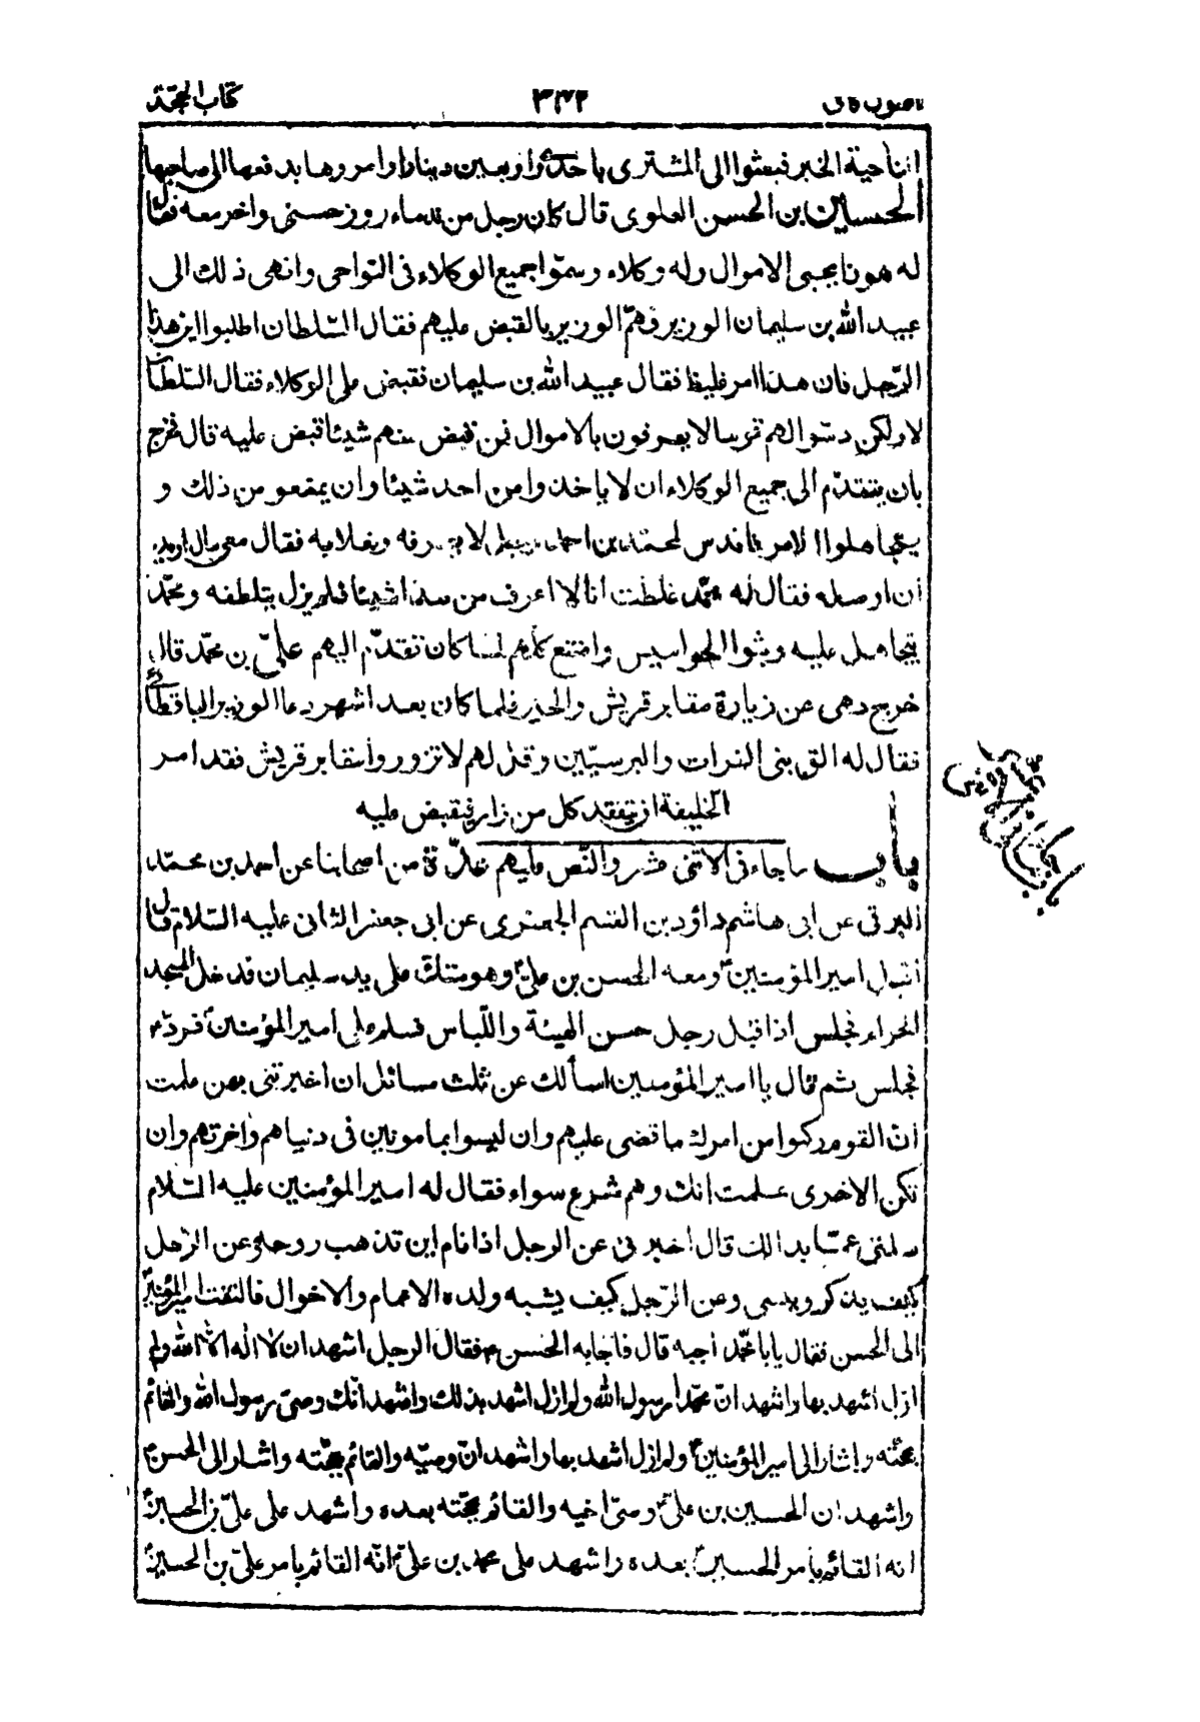 اصول کافی ٣٣٢ كتاب الحجّة
الناحية الخبر فبعثوا الى المشترى باخذ واربعين دينارا وامروها بدفعها الى صاحبها
الحسين بن الحسن العلوى قال كان رجل من ندماء روز حسنى واخر معه فقال
له هو ذا يجبى الاموال وله وكلاء وسمّوا جميع الوكلاء فى النواحى وانهى ذلك الى
عبيد الله بن سليمان الوزير فهمّ الوزير بالقبض عليهم فقال السّلطان اطلبوا اين هذا
الرّجل فان هذا امر غليظ فقال عبيد الله بن سليمان نقبض على الوكلاء فقال السّلطان
لا ولكن دسّوا لهم قوما لا يعرفون بالاموال فمن قبض منهم شيئا قبض عليه قال فخرج
بان يتقدّم الى جميع الوكلاء ان لا ياخذوا من احد شيئا وان يمتنعو من ذلك و
يتجاهلوا الامر فاندس لمحمّد بن احمد رجل لا يعرفه وخلا به فقال معى مال اريد
ان اوصله فقال له محمّد غلطت انا لا اعرف من هذا شيئا فلم يزل يتلطفه ومحمّد
يتجاهل عليه وبثوا الجواسيس وامتنع كلهم لما كان تقدّم اليهم علىّ بن محمّد قال
خرج نهى عن زيارة مقابر قريش والحير فلما كان بعد اشهر دعا الوزير الباقطائى
فقال له الق بنى الفرات والبرسيّين وقل لهم لا تزوروا مقابر قريش فقد امر
الخليفة ان يتفقد كل من زار فيقبض عليه
باب ما جاء فى الاثنى عشر والنّص عليهم عدّة من اصحابنا عن احمد بن محمّد
البرقى عن ابى هاشم داؤد بن القسم الجعفرى عن ابى جعفر الثانى عليه السّلام قال
اقبل امير المؤمنين ومعه الحسن بن علىّ وهو متكئ على يد سليمان فدخل المسجد
الحرام فجلس اذا قبل رجل حسن الهيئة واللّباس فسلم على امير المؤمنين فردّ
فجلس ثم قال يا امير المؤمنين اسألك عن ثلث مسائل ان اخبرتنى بهن علمت
انّ القوم ركبوا من امرك ما قضى عليهم وان ليسوا بمامونين فى دنياهم واخرتهم وان
تكن الاخرى علمت انك وهم شرع سواء فقال له امير المؤمنين عليه السّلام
سلنى عمّا بدا لك قال اخبرنى عن الرجل اذا نام اين تذهب روحه وعن الرّجل
كيف يذكر وينسى وعن الرّجل كيف يشبه ولده الاعمام والاخوال فالتفت امير المؤمنين
الى الحسن فقال يابا محمّد اجبه قال فاجابه الحسن فقال الرجل اشهد ان لا اله الا الله ولم
ازل اشهد بها واشهد انّ محمّدا رسول الله ولم ازل اشهد بذلك واشهد انّك وصىّ رسول الله والقائم
بحجّته واشار الى امير المؤمنين ولم ازل اشهد بها واشهد انّ وصيّه والقائم بحجّته واشار الى الحسن
واشهد ان الحسين بن علىّ وصىّ اخيه والقائم بحجّته بعده واشهد على علىّ بن الحسين
انه القائم بامر الحسين بعده واشهد على محمد بن علىّ انّه القائم بامر علىّ بن الحسين